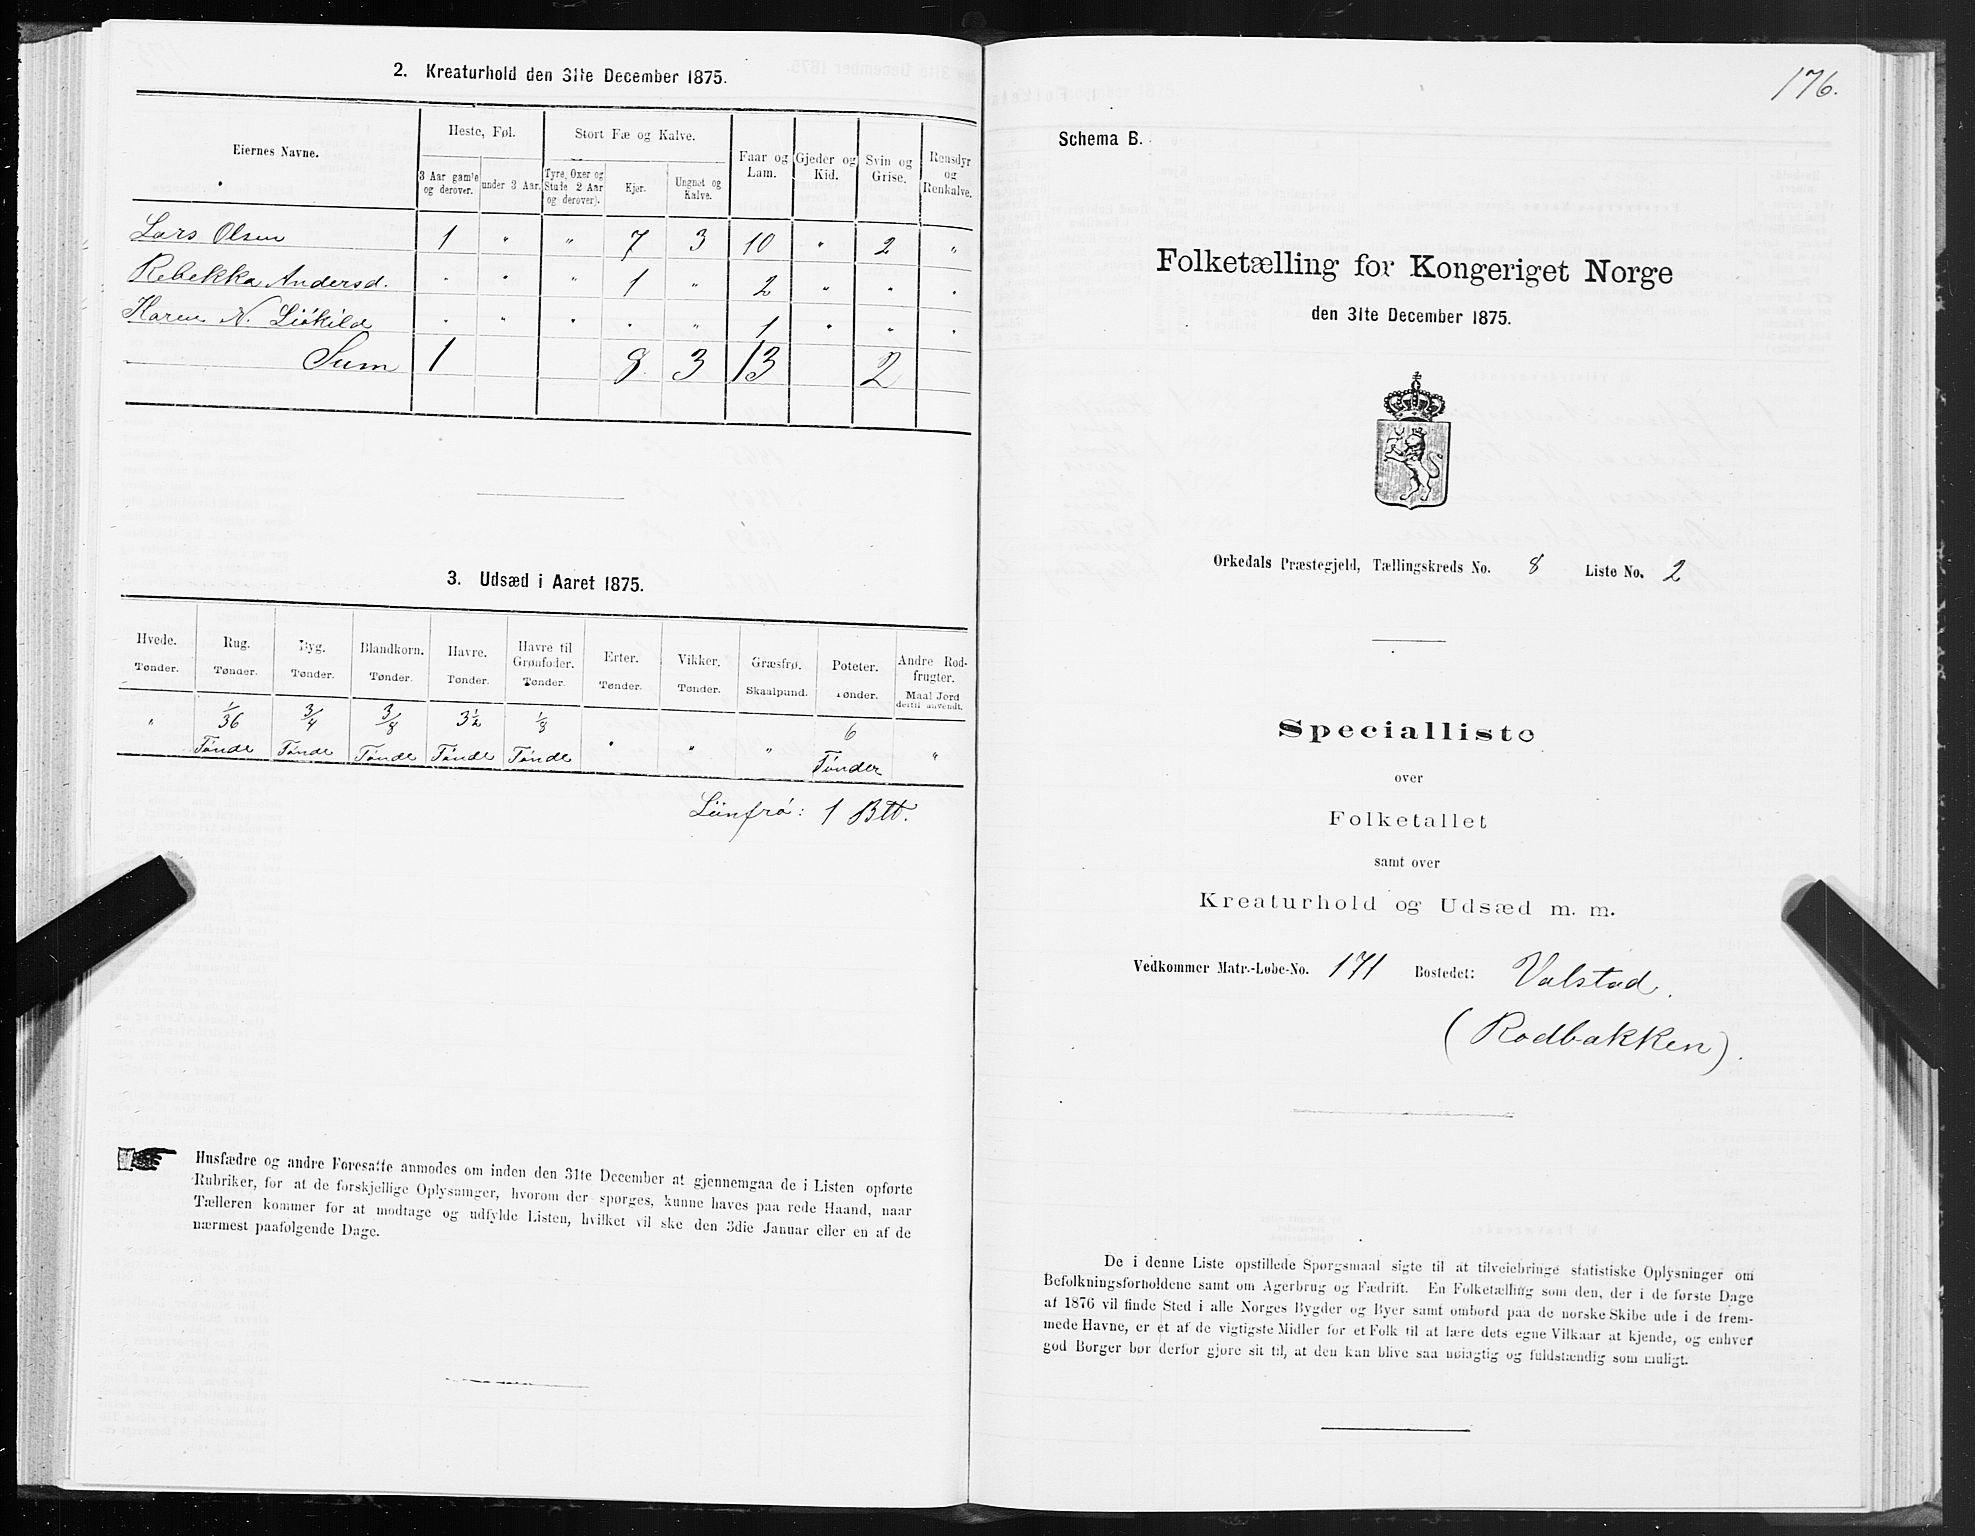 2. Kreaturhold den 31te December 1875.
Eiernes Navne.
Heste, Føl.
Stort Fæ og Kalve.
Faar og Lam.
Gjeder og Kid.
Svin og Grise.
Rensdyr og Renkalve.
3 Aar gamle og derover.
under 3 Aar.
Tyre, Oxer og Stude 2 Aar og derover).
Kjør.
Ungnøt og Kalve.
Lars Olsen 1 " " 7 3 10 " 2 "
Rebekka Andersd. " " " 1 " 2 " " "
Karen N. Liökild " " " " " 1 " " "
Sum 1 8 3 13 2
3. Udsæd i Aaret 1875.
Hvede. Rug. Byg. Blandkorn. Havre. Havre til Grønfoder. Erter. Vikker. Græsfrø. Poteter. Andre Rodfrugter.
Tønder. Tønder. Tønder. Tønder. Tønder. Tønder. Tønder. Tønder. Skaalpund. Tønder. Maal Jord dertil anvendt.
" 1/36 3/4 3/8 3 1/2 1/8 " " " 6 "
Tønde Tønde Tønde Tønde Tønde Tønder
Liinfrö: 1 Btt.
Husfædre og andre Foresatte anmodes om inden den 31te December at gjennemgaa de i Listen opførte
Rubriker, for at de forskjellige Oplysninger, hvorom der spørges, kunne haves paa rede Haand, naar
Tælleren kommer for at modtage og udfylde Listen, hvilket vil ske den 3die Januar eller en af de
nærmest paafølgende Dage.
176.
Schema B.
Folketælling for Kongeriget Norge
den 31te December 1875.
Orkedals Præstegjeld, Tællingskreds No. 8 Liste No. 2
Specialliste
over
Folketallet
samt over
Kreaturhold og Udsæd m. m.
Vedkommer Matr.-Løbe-No. 171 Bostedet: Valstad.
(Rodbakken).
De i denne Liste opstillede Spørgsmaal sigte til at tilveiebringe statistiske Oplysninger om
Befolkningsforholdene samt om Agerbrug og Fædrift. En Folketælling som den, der i de første Dage
af 1876 vil finde Sted i alle Norges Bygder og Byer samt ombord paa de norske Skibe ude i de frem-
mede Havne, er et af de vigtigste Midler for et Folk til at lære dets egne Vilkaar at kjende, og enhver
god Borger bør derfor gjøre sit til, at den kan blive saa nøiagtig og fuldstændig som muligt.